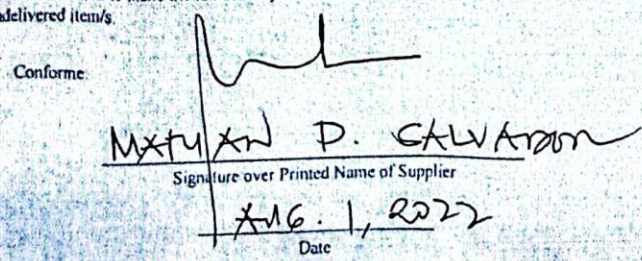 delivered item/s.
Conforme:
MATYAN D. SALVADOR
Signature over Printed Name of Supplier
AUG. 1, 2022
Date